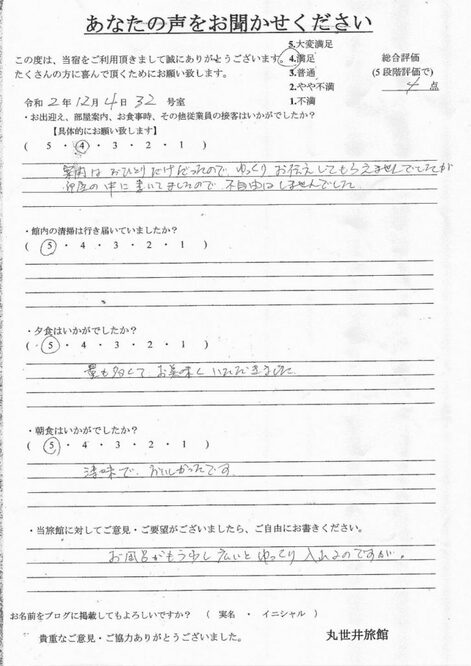 あなたの声をお聞かせください
この度は、当宿をご利用頂きまして誠にありがとうございます。
たくさんの方に喜んで頂くためにお願い致します。
5.大変満足
4.満足
3.普通
2.やや不満
1.不満
総合評価
(5段階評価で)
4 点
令和 2年 12月 4日 32 号室
・お出迎え、部屋案内、お食事時、その他従業員の接客はいかがでしたか?
【具体的にお願い致します】
( 5 ・ 4 ・ 3 ・ 2 ・ 1 )
案内はおひとりだけだったので ゆっくり お伝えしてもらえませんでしたが
の中に書いてましたので 不自由はしませんでした
・館内の清掃は行き届いていましたか?
( 5 ・ 4 ・ 3 ・ 2 ・ 1 )
・夕食はいかがでしたか?
( 5 ・ 4 ・ 3 ・ 2 ・ 1 )
量も多くて お美味しくいただきました
・朝食はいかがでしたか?
( 5 ・ 4 ・ 3 ・ 2 ・ 1 )
で、おいしかったです
・当旅館に対してご意見・ご要望がございましたら、ご自由にお書きください。
お風呂がもう少し広いとゆっくり入れるのですが。
お名前をブログに掲載してもよろしいですか? ( 実名 ・ イニシャル )
貴重なご意見・ご協力ありがとうございました。
丸世井旅館